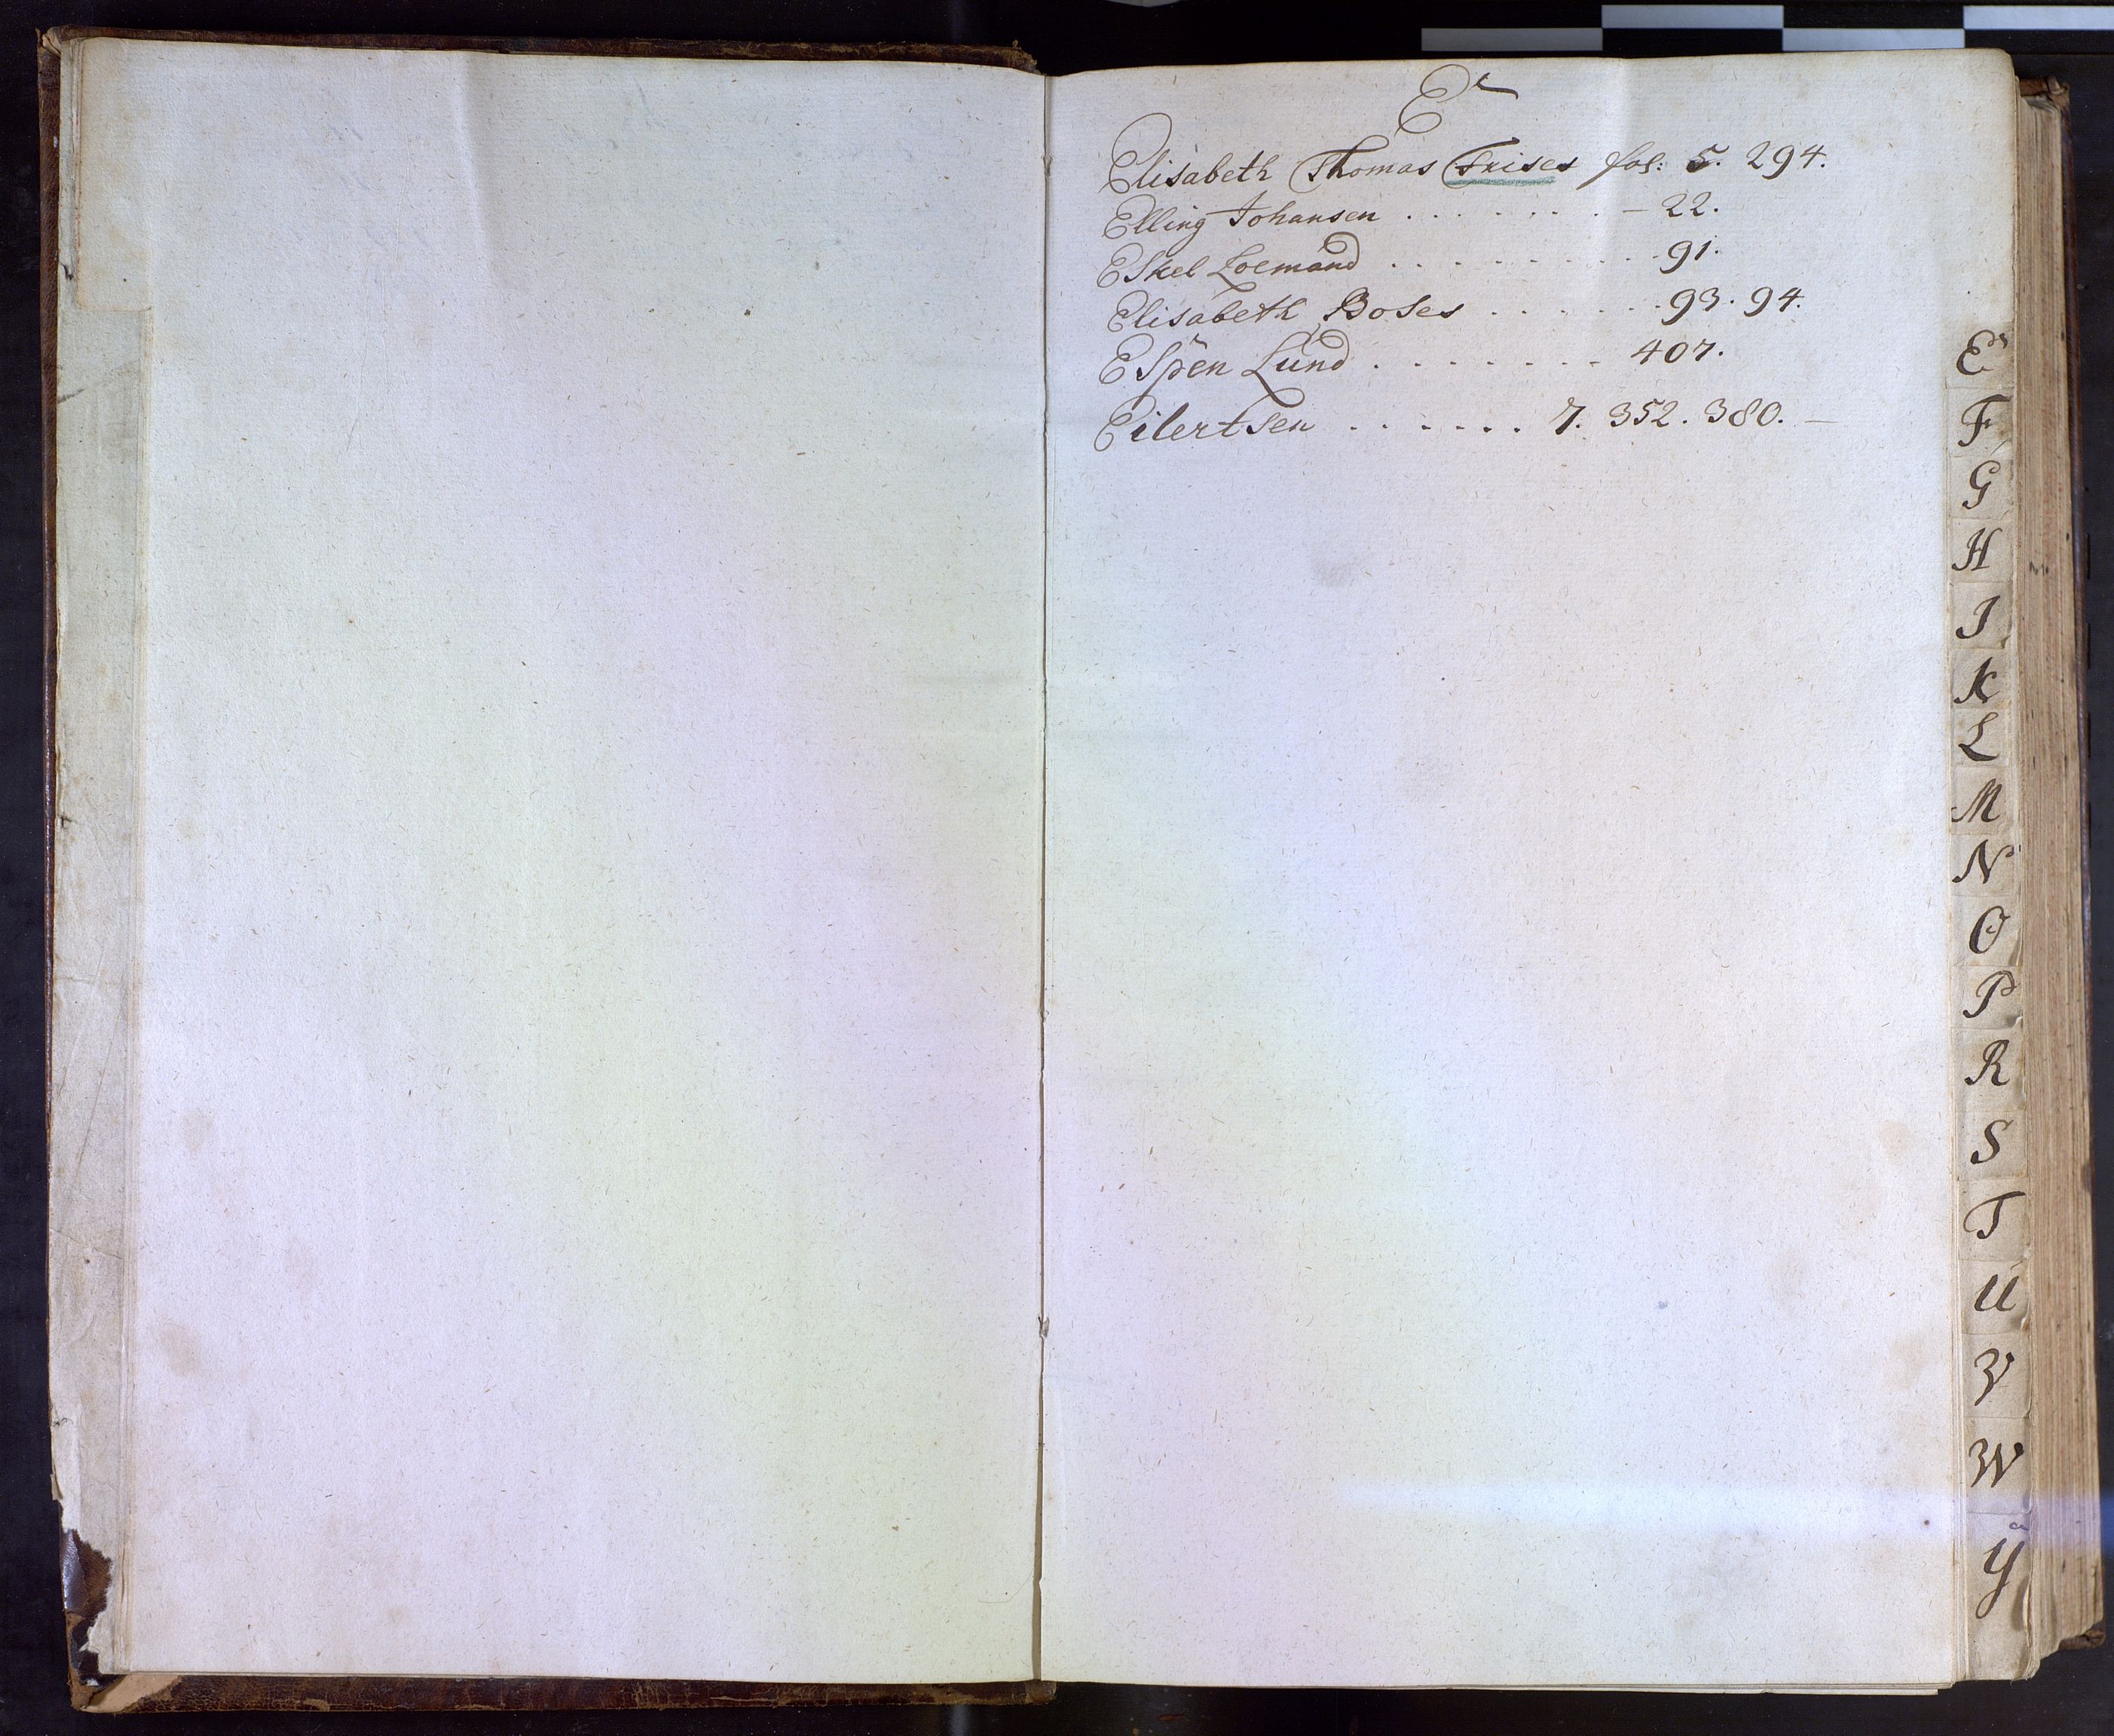 E
Elisabeth Thomas Frises fol: 5. 294.
Elling Johansen . . . . . . . - 22.
Eskel Loemand . . . . . . . . . 91.
Elisabeth Boses . . . . . . 93. 94.
Espen Lund . . . . . . . - 407.
Eilertsen . . . . . . 7. 352. 380. -
E
F
G
H
I
K
L
M
N
O
P
R
S
T
U
V
W
Y